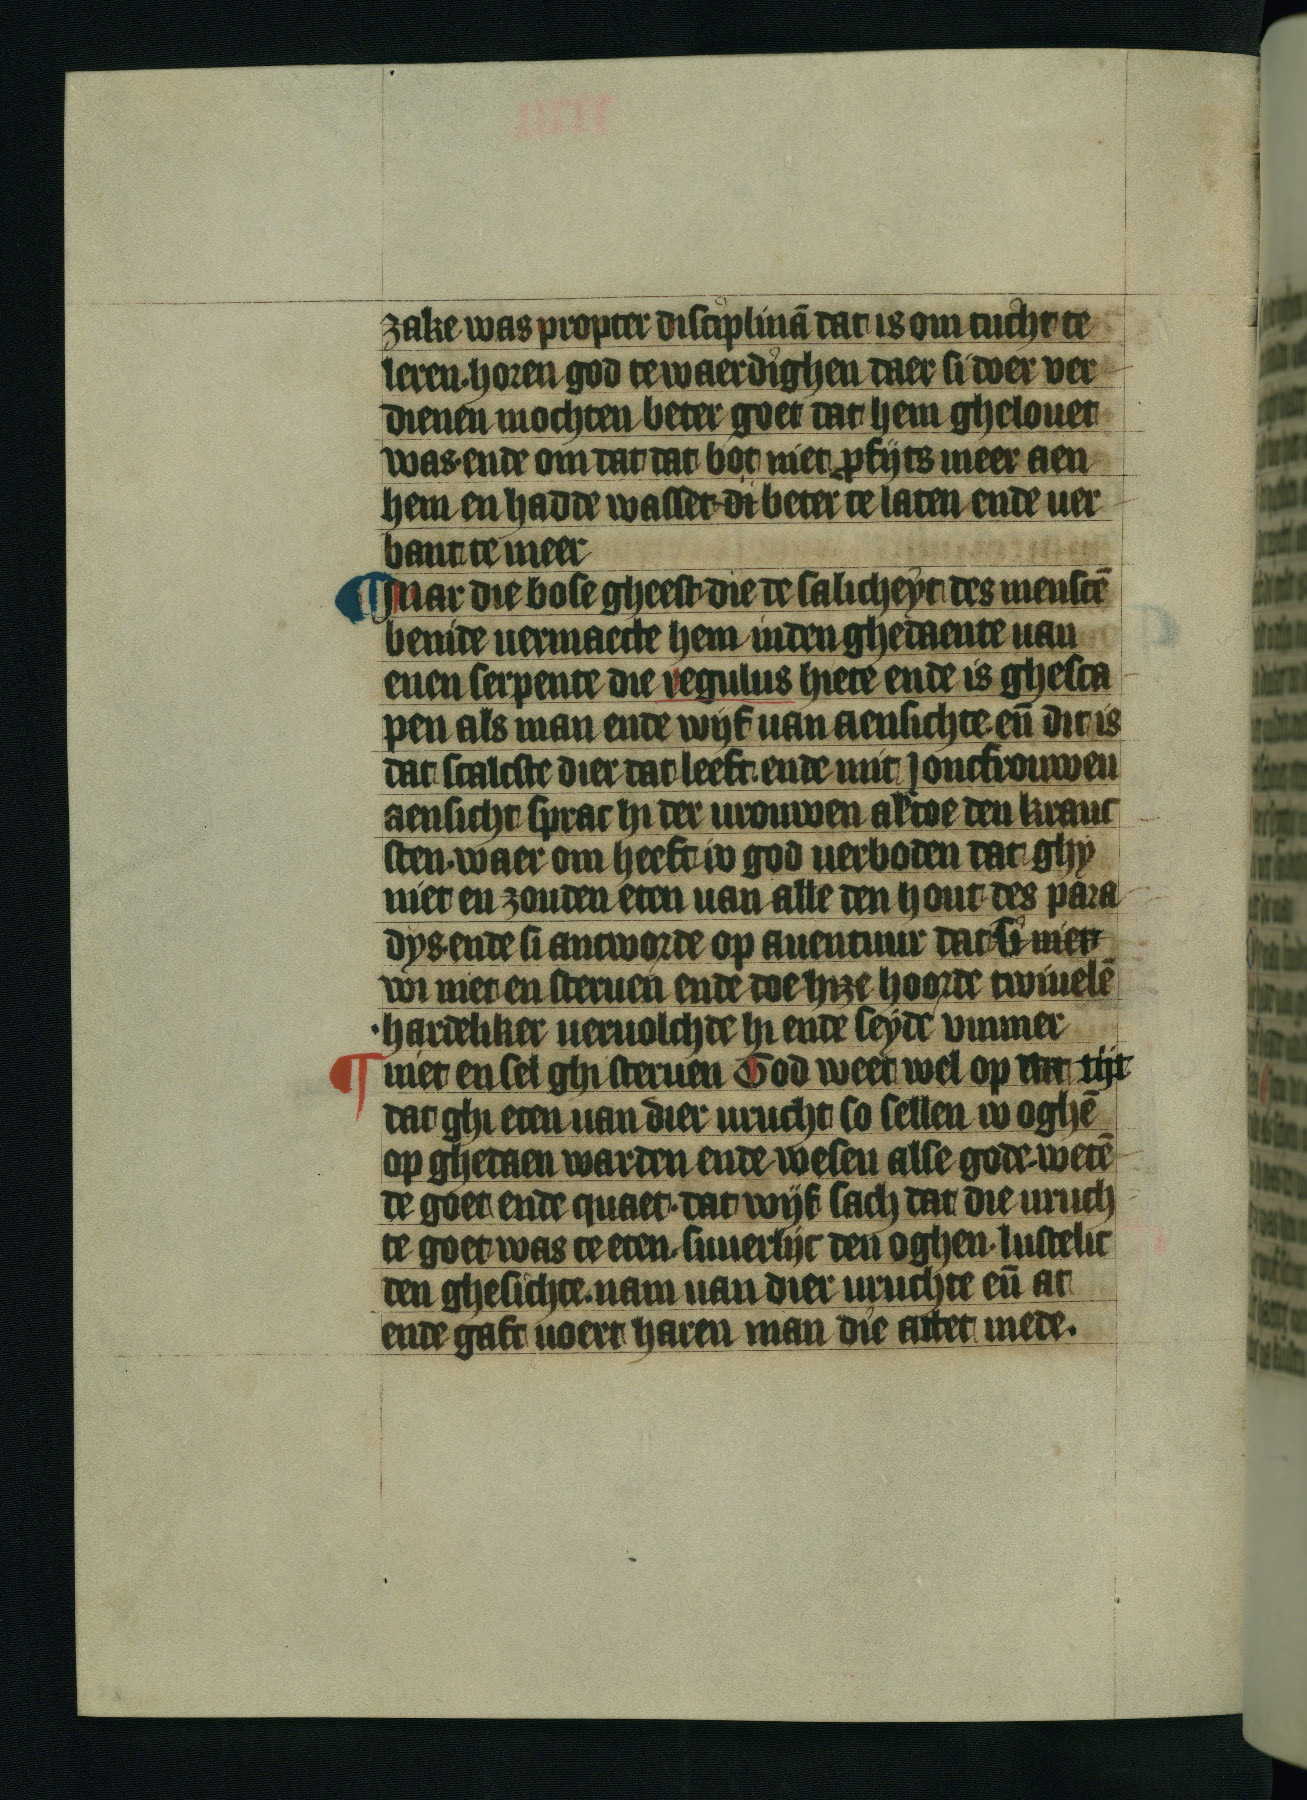 zake was propter disciplinā dat is om tucht te
leren. horen god te waerdighen daer si doer ver
dienen mochten beter goet dat hem ghelouet
was. ende om dat dat bot niet ꝓfijts meer aen
hem en hadde wasset di beter te laten ende uer
bant te meer
¶ Mar die bose gheest die de salicheyt des menscē
benide uermaecte hem inden ghedaente uan
enen serpente die regulus hiete ende is ghesca
pen als man ende wijf uan aensichte. eñ dit is
dat scalcste dier dat leeft. ende mit joncfrouwen
aensicht sprac hi der urouwen als doe den kranc
sten. waer om heeft iv god uerboden dat ghy
niet en zouden eten uan alle den hout des para
dys. ende si antworde op auentuur dat si niet
wi niet en steruen ende doe hise hoorde twiuelē
hardeliker ueruolchde hi ende seyde vmmer
¶ niet en sel ghi steruen God weet wel op wat tijt
dat ghi eten uan dier urucht so sellen iv oghē
op ghedaen warden ende wesen alse gode. wetē
de goet ende quaet. dat wijf sach dat die uruch
te goet was te eten. suuerlijc den oghen. lustelic
den ghesichte. nam uan dier uruchte eñ at
ende gaft uoert haren man die attet mede.